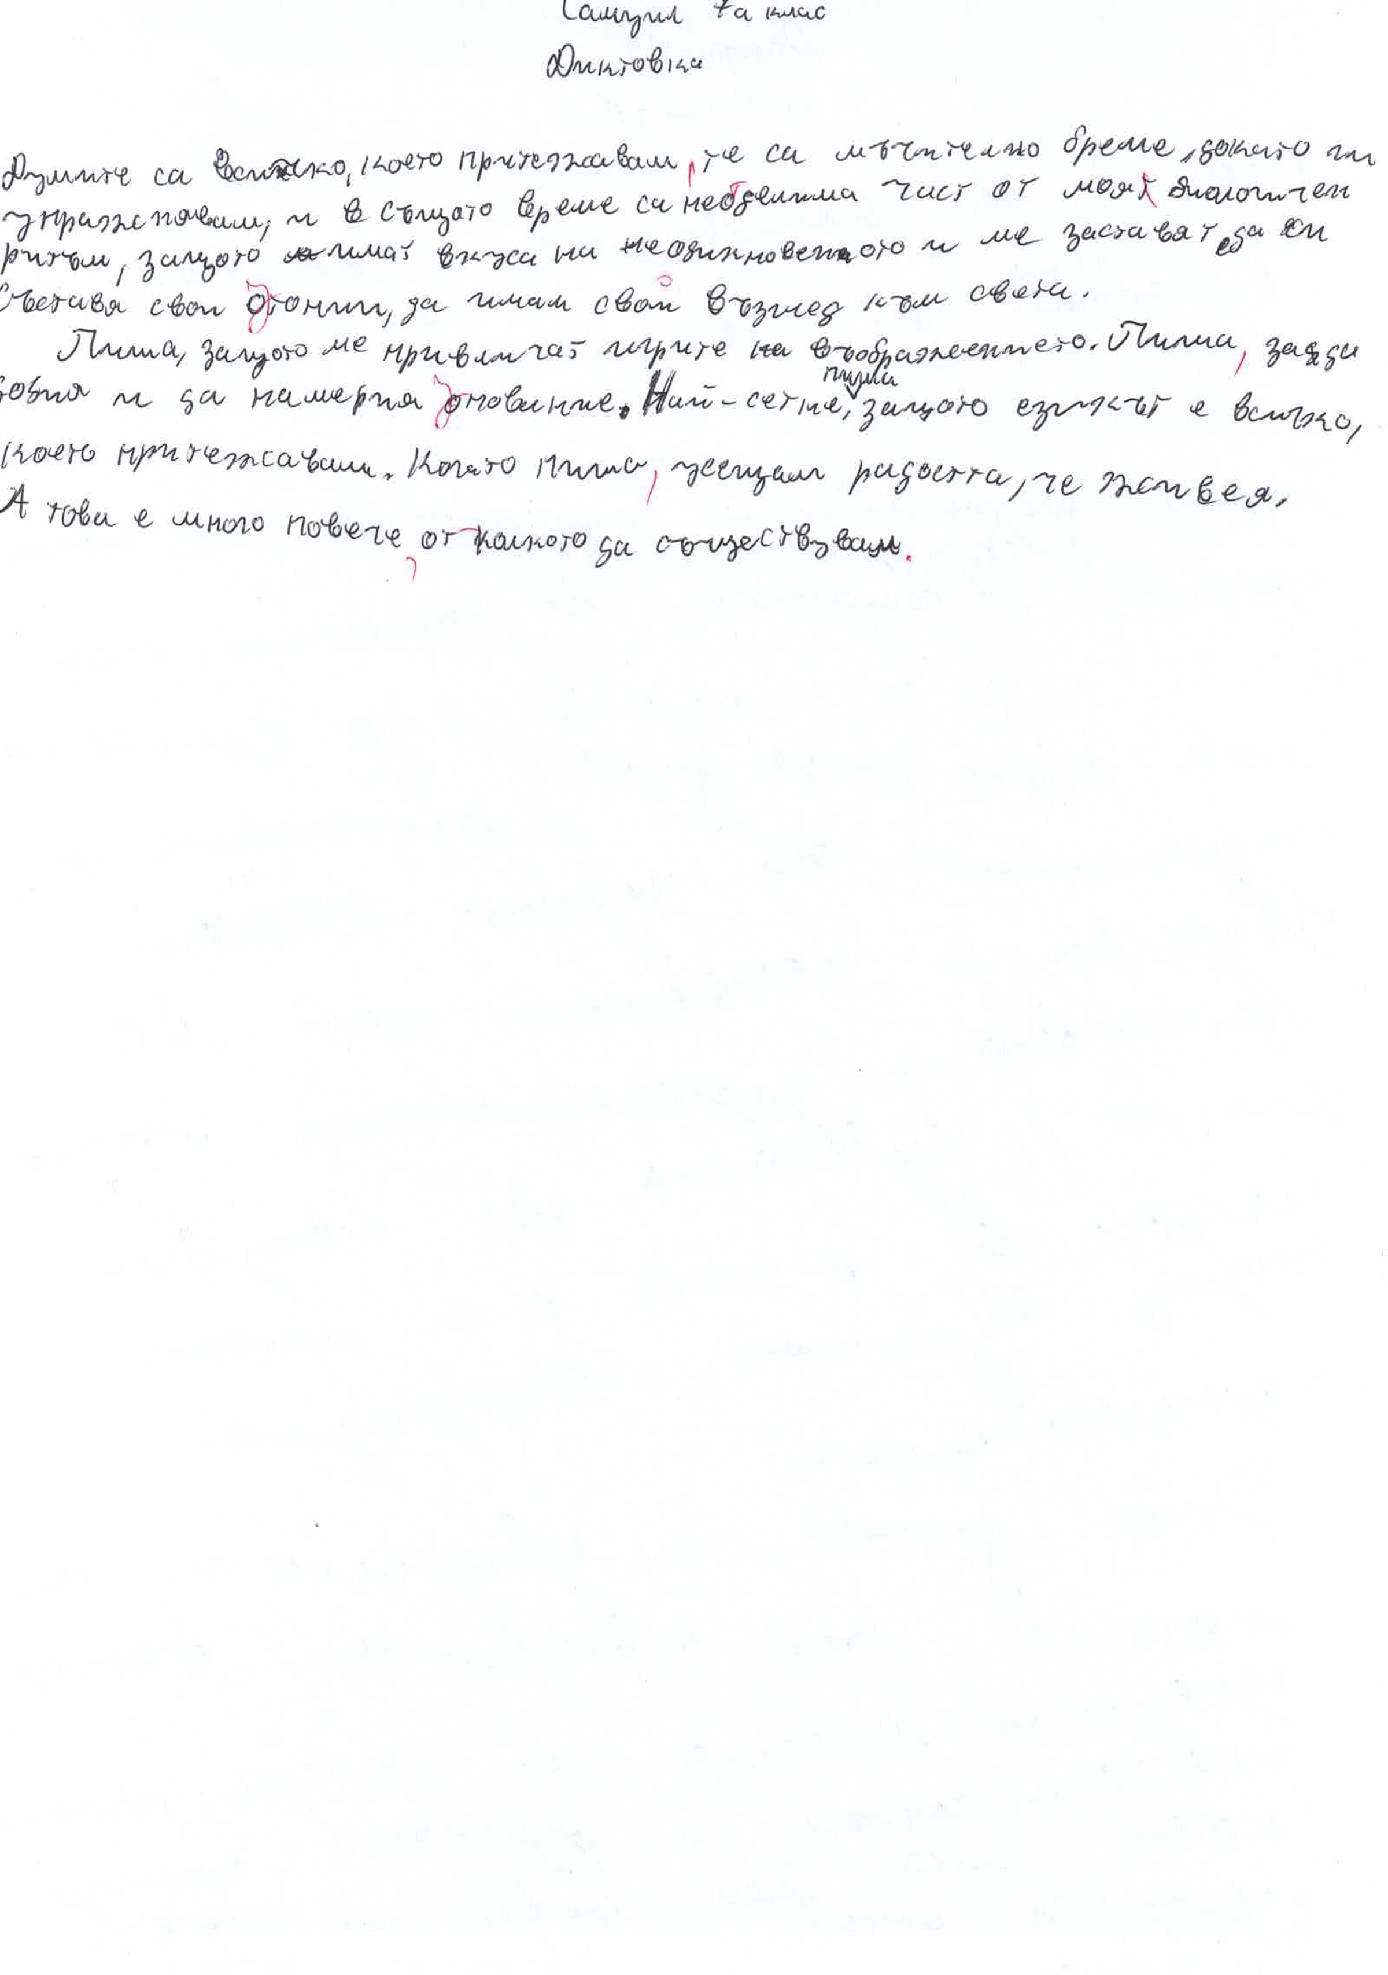 Самуил 7а клас
Диктовка
Думите са всичко, което притежавам, те са мъчително бреме, докато ги
упражнявам, и в същото време са неотделима част от моят биологичен
ритъм, защото имат вкуса на необикновеното и ме заставят да си
съставя свои огоним, да имам свой възглед към света.
Пиша, защото ме привличат игрите на въображението. Пиша, за да
ловя и да намеря упование. Най-сетне, пиша защото езикът е всичко,
което притежавам. Когато пиша, усещам радостта, че живея.
А това е много повече, от колкото да съществувам.